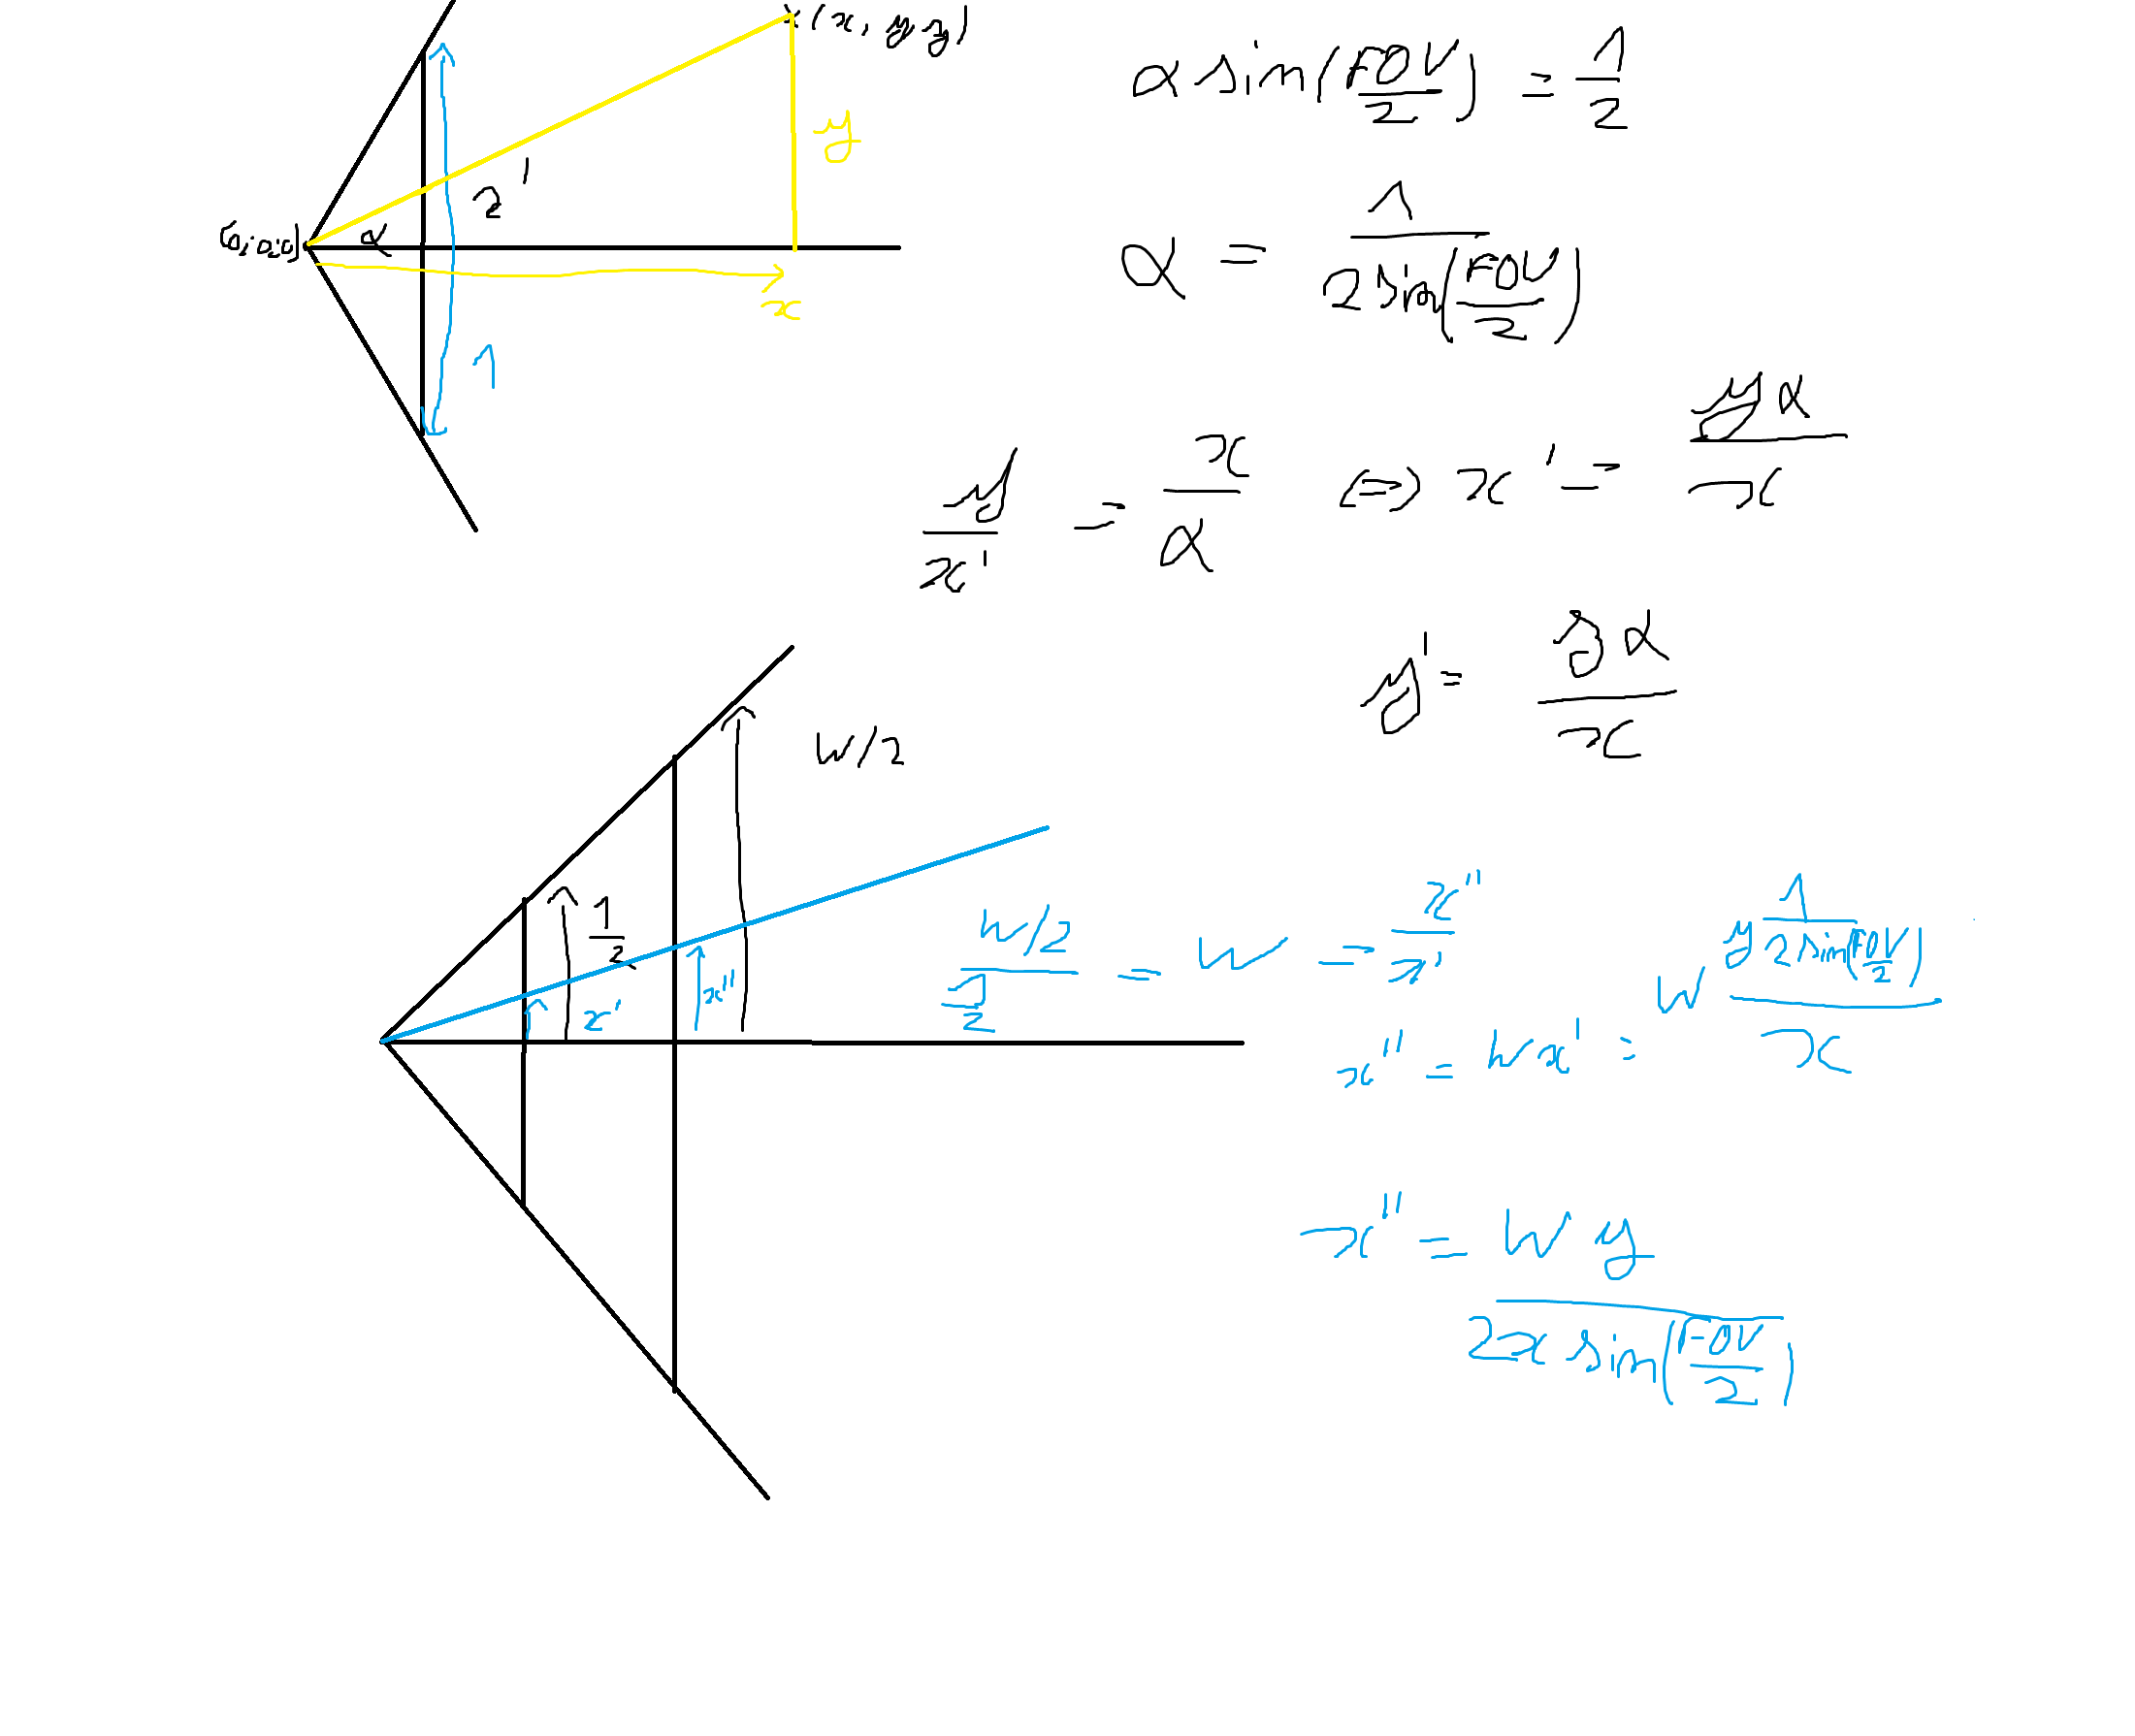 (0;0;0)
α
x'
1
(x, y, z)
y
x
α sin(FOV/2) = 1/2
α = 1/(2 sin(FOV/2))
y/x' = x/α ⇔ x' = yα/x
y' = zα/x
W/2
1/2
x'
x''
(W/2)/(1/2) = W = x''/x'
x'' = Wx' = W (y 1/(2 sin(FOV/2)))/x
x'' = Wy/(2x sin(FOV/2))